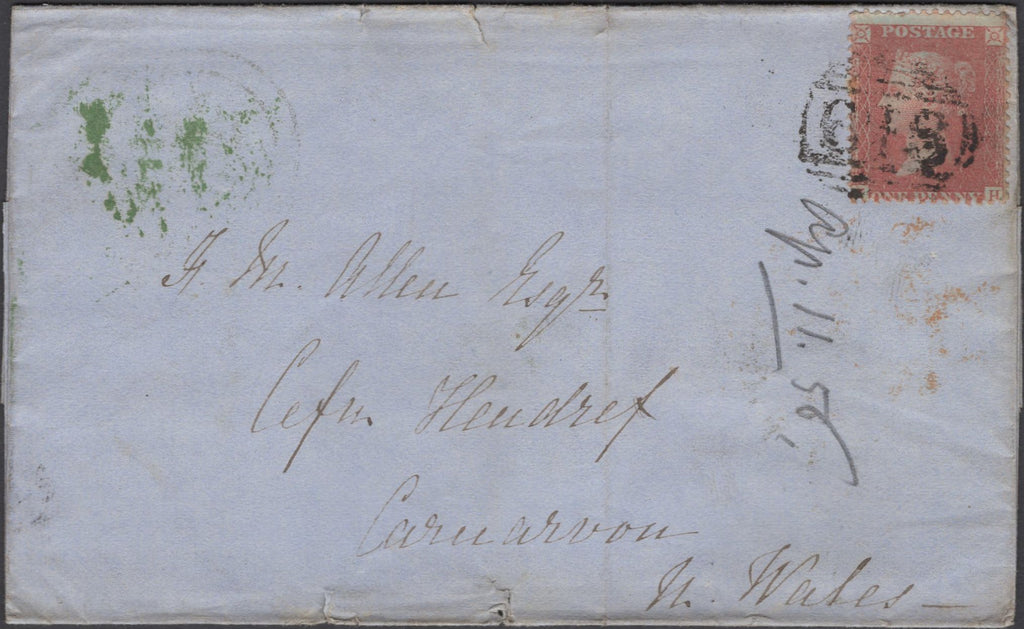 POSTAGE
ONE PENNY H
F. M. Allen Esqr.
Cefn Hendref
Carnarvon
N. Wales
Ap. 11. 56.